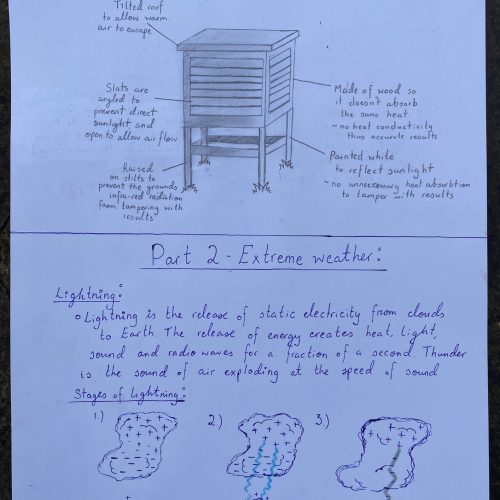 Tilted roof
to allow warm
air to escape
Slats are
angled to
prevent direct
sunlight, and
open to allow air flow
Made of wood so
it doesnt absorb
the suns heat.
~ no heat conductivity
thus accurate results
Raised
on stilts to
prevent the grounds
infra-red radiation
from tampering with
results
Painted white
to reflect sunlight
~ no unnecessary heat absorbtion
to tamper with results
Part 2 - Extreme weather:
Lightning:
Lightning is the release of static electricity from clouds
to Earth. The release of energy creates heat, light,
sound and radio waves for a fraction of a second. Thunder
is the sound of air exploding at the speed of sound.
Stages of lightning:
1) 2) 3.)